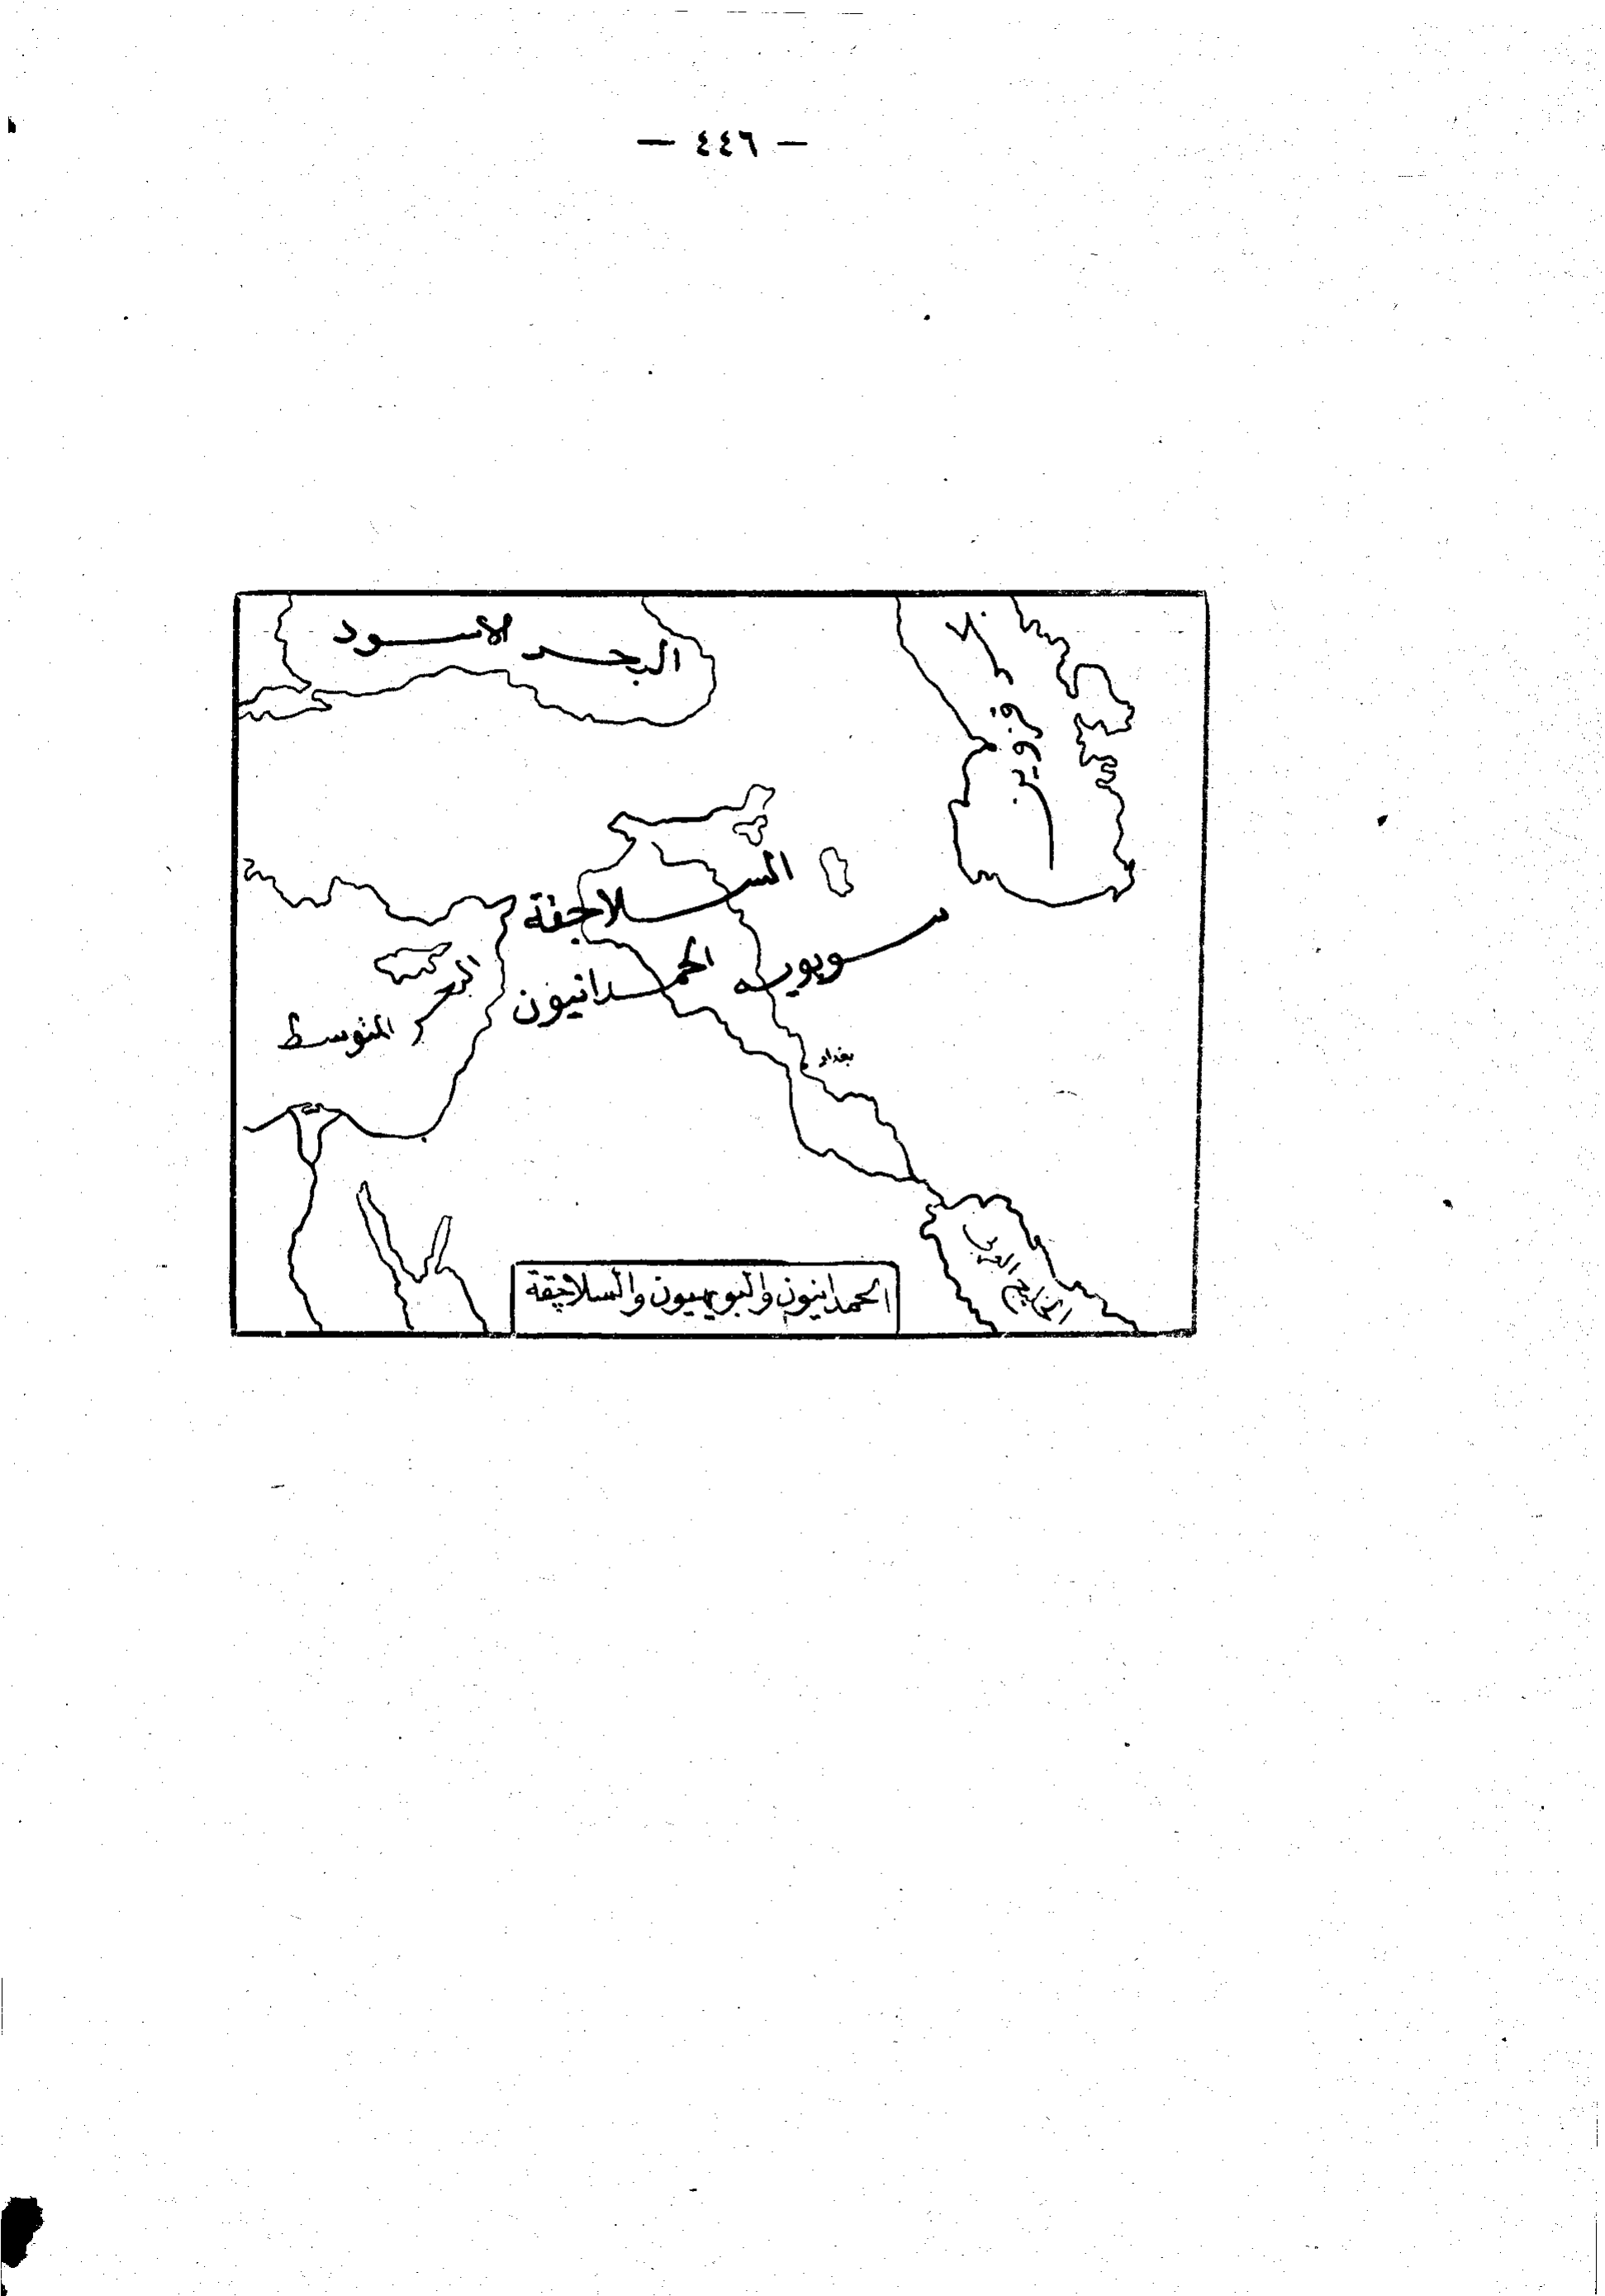 — ٤٤٦ —
البحر الأسود
بحر قزوين
السلاجقة
بنو بويه
الحمدانيون
البحر المتوسط
بغداد
الخليج العربي
الحمدانيون والبويهيون والسلاجقة